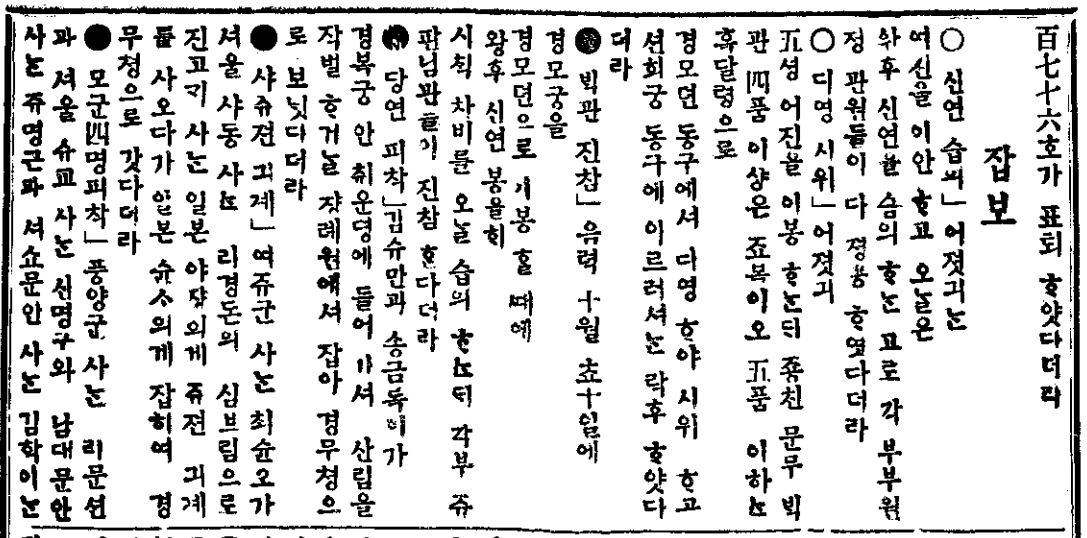 百七十六호가 표퇴 ᄒᆞ얏다더라
잡보
○ 신연 습의」어졋긔ᄂᆞᆫ
여신을 이안ᄒᆞ고 오ᄂᆞᆯ은
와후 신연을 습의 ᄒᆞᄂᆞᆫ 고로 각 부부원
졍 관원들이 다 졍용 ᄒᆞ엿다더라
○ 디영 시위」어졋긔
五셩 어진을 이봉 ᄒᆞᄂᆞᆫ듸 죵친 문무 ᄇᆡᆨ
관 四품 이샹은 죠복이오 五품 이하ᄂᆞᆫ
흑달령으로
경모뎐 동구에셔 디영 ᄒᆞ야 시위 ᄒᆞ고
션희궁 동구에 이르러셔ᄂᆞᆫ 락후 ᄒᆞ얏다
더라
ᄇᆡᆨ관 진참」음력 十월 쵸十일에
경모궁을
경모뎐으로 기봉 ᄒᆞᆯ ᄯᅢ에
왕후 신연 봉을히
시칙 차비를 오ᄂᆞᆯ 습의 ᄒᆞᄂᆞᆫ데 각부 쥬
판님관들이 진참 ᄒᆞᆫ다더라
당연 피착」김슈만과 송금독이가
경복궁 안 취운뎡에 들어 가셔 산림을
작벌 ᄒᆞ거ᄂᆞᆯ 쟝례원에셔 잡아 경무쳥으
로 보닛다더라
● 샤쥬젼 긔계」여쥬군 사ᄂᆞᆫ 최슌오가
셔울 샤동 사ᄂᆞᆫ 리경돈의 심브림으로
진고ᄀᆡ 사ᄂᆞᆫ 일본 야쟝의게 쥬젼 긔계
를 사오다가 일본 슌사의게 잡히여 경
무쳥으로 갓다더라
● 모군四명피착」풍양군 사ᄂᆞᆫ 리문션
과 셔울 슈교 사ᄂᆞᆫ 신명구와 남대문안
사ᄂᆞᆫ 쥬명근과 셔쇼문안 사ᄂᆞᆫ 김학이ᄂᆞᆫ